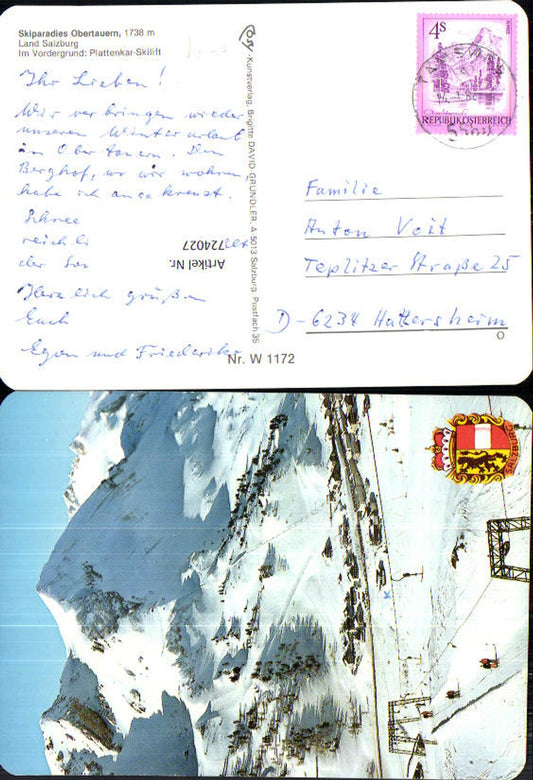 Skiparadies Obertauern, 1738 m
Land Salzburg
Im Vordergrund: Plattenkar-Skilift
Ihr Lieben!
Wir verbringen wieder
unseren Winterurlaub
in Obertauern. Den
Berghof, wo wir wohnen,
habe ich angekreuzt.
Schnee
reichli
der So
Herzlich grüßen
Euch
Egon und Friederike
Artikel Nr. 724027
Kunstverlag, Brigitte DAVID-GRÜNDLER, A 5013 Salzburg, Postfach 35
Nr. W 1172
4S
REPUBLIK ÖSTERREICH
Familie
Anton Voit
Teplitzer Straße 25
D-6234 Hattersheim
SALZBURG